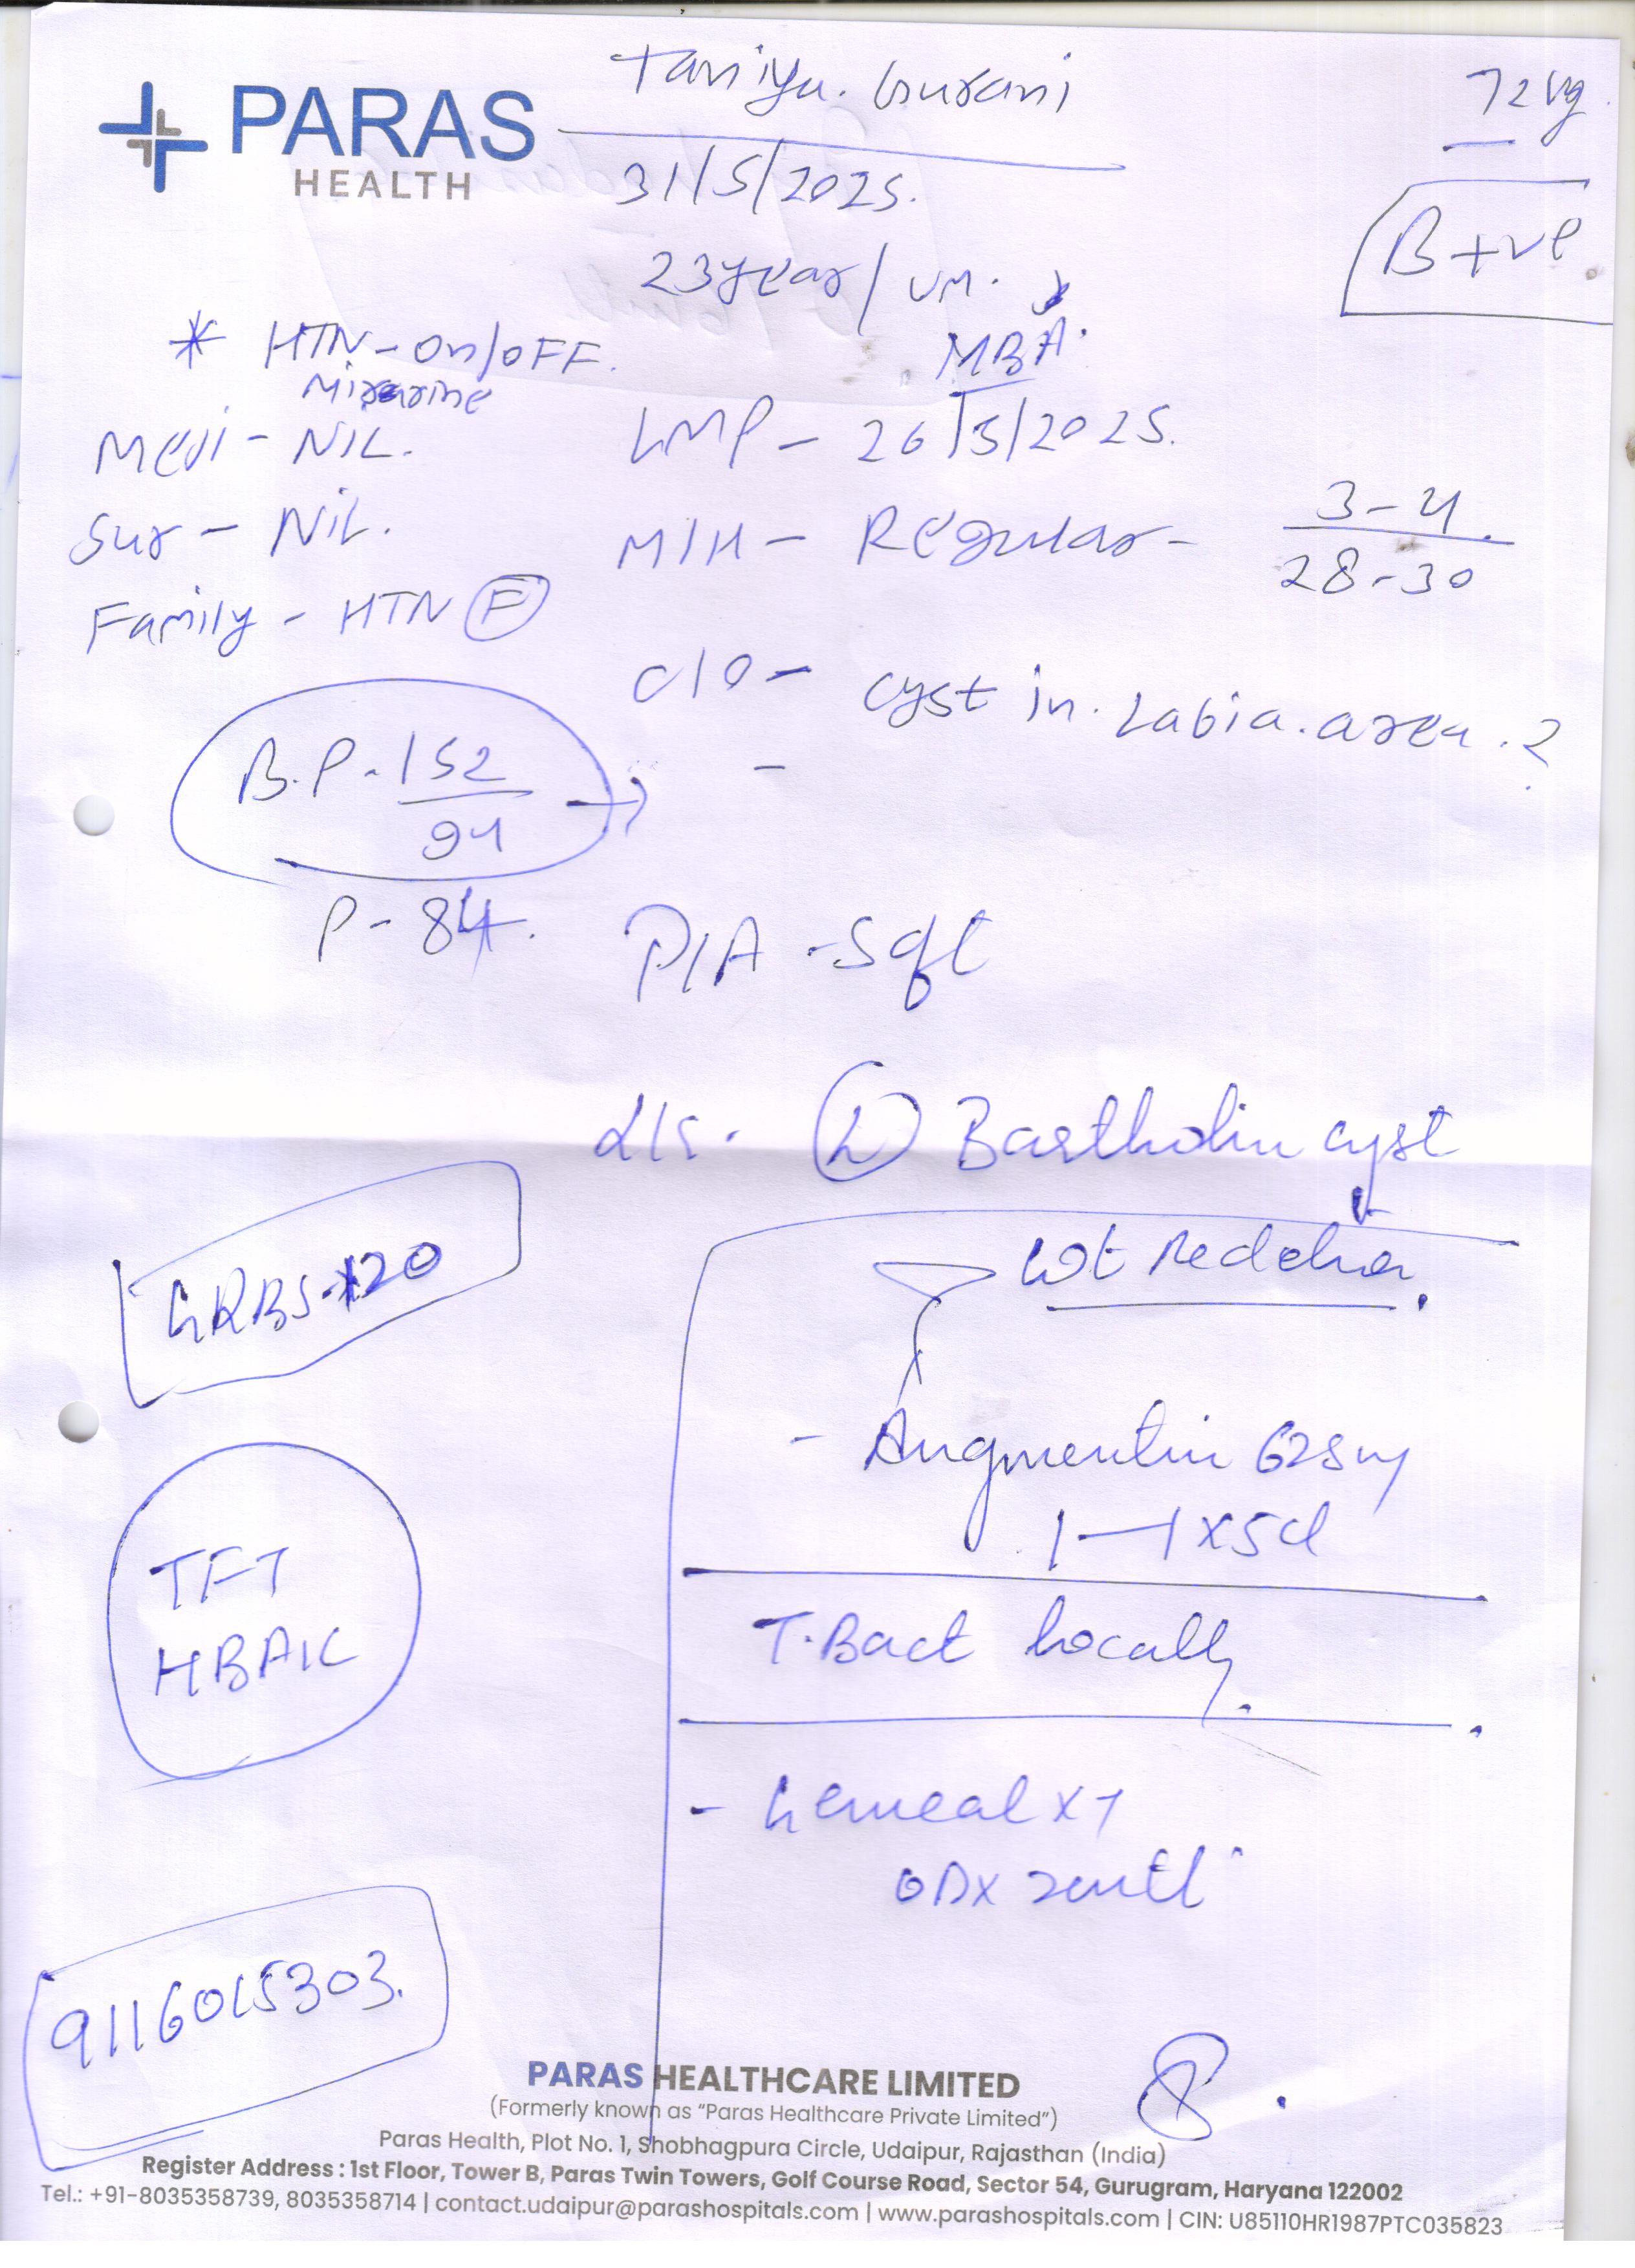 PARAS
HEALTH
Taniya. Gurani
72 kg.
31/5/2025.
B +ve.
23 year / UM.
MBA.
* HTN - on/OFF.
Medi - NIL.
LMP - 26/5/2025.
Sur - NiL.
M/H - Regular - 3-4 / 28-30
Family - HTN (F)
C/O - cyst in. Labia. area. ?
B.P. - 152 / 94 →
P - 84.
P/A - Soft
L/E. (L) Bartholin cyst
GRBS - 120
Wt Reduction.
- Augmentin 625 mg
1—1 x 5d
TFT
T. Bact locally.
HBA1C
x 1
OD x
9116015303.
PARAS HEALTHCARE LIMITED
(Formerly known as "Paras Healthcare Private Limited")
Paras Health, Plot No. 1, Shobhagpura Circle, Udaipur, Rajasthan (India)
Register Address : 1st Floor, Tower B, Paras Twin Towers, Golf Course Road, Sector 54, Gurugram, Haryana 122002
Tel.: +91-8035358739, 8035358714 | contact.udaipur@parashospitals.com | www.parashospitals.com | CIN: U85110HR1987PTC035823